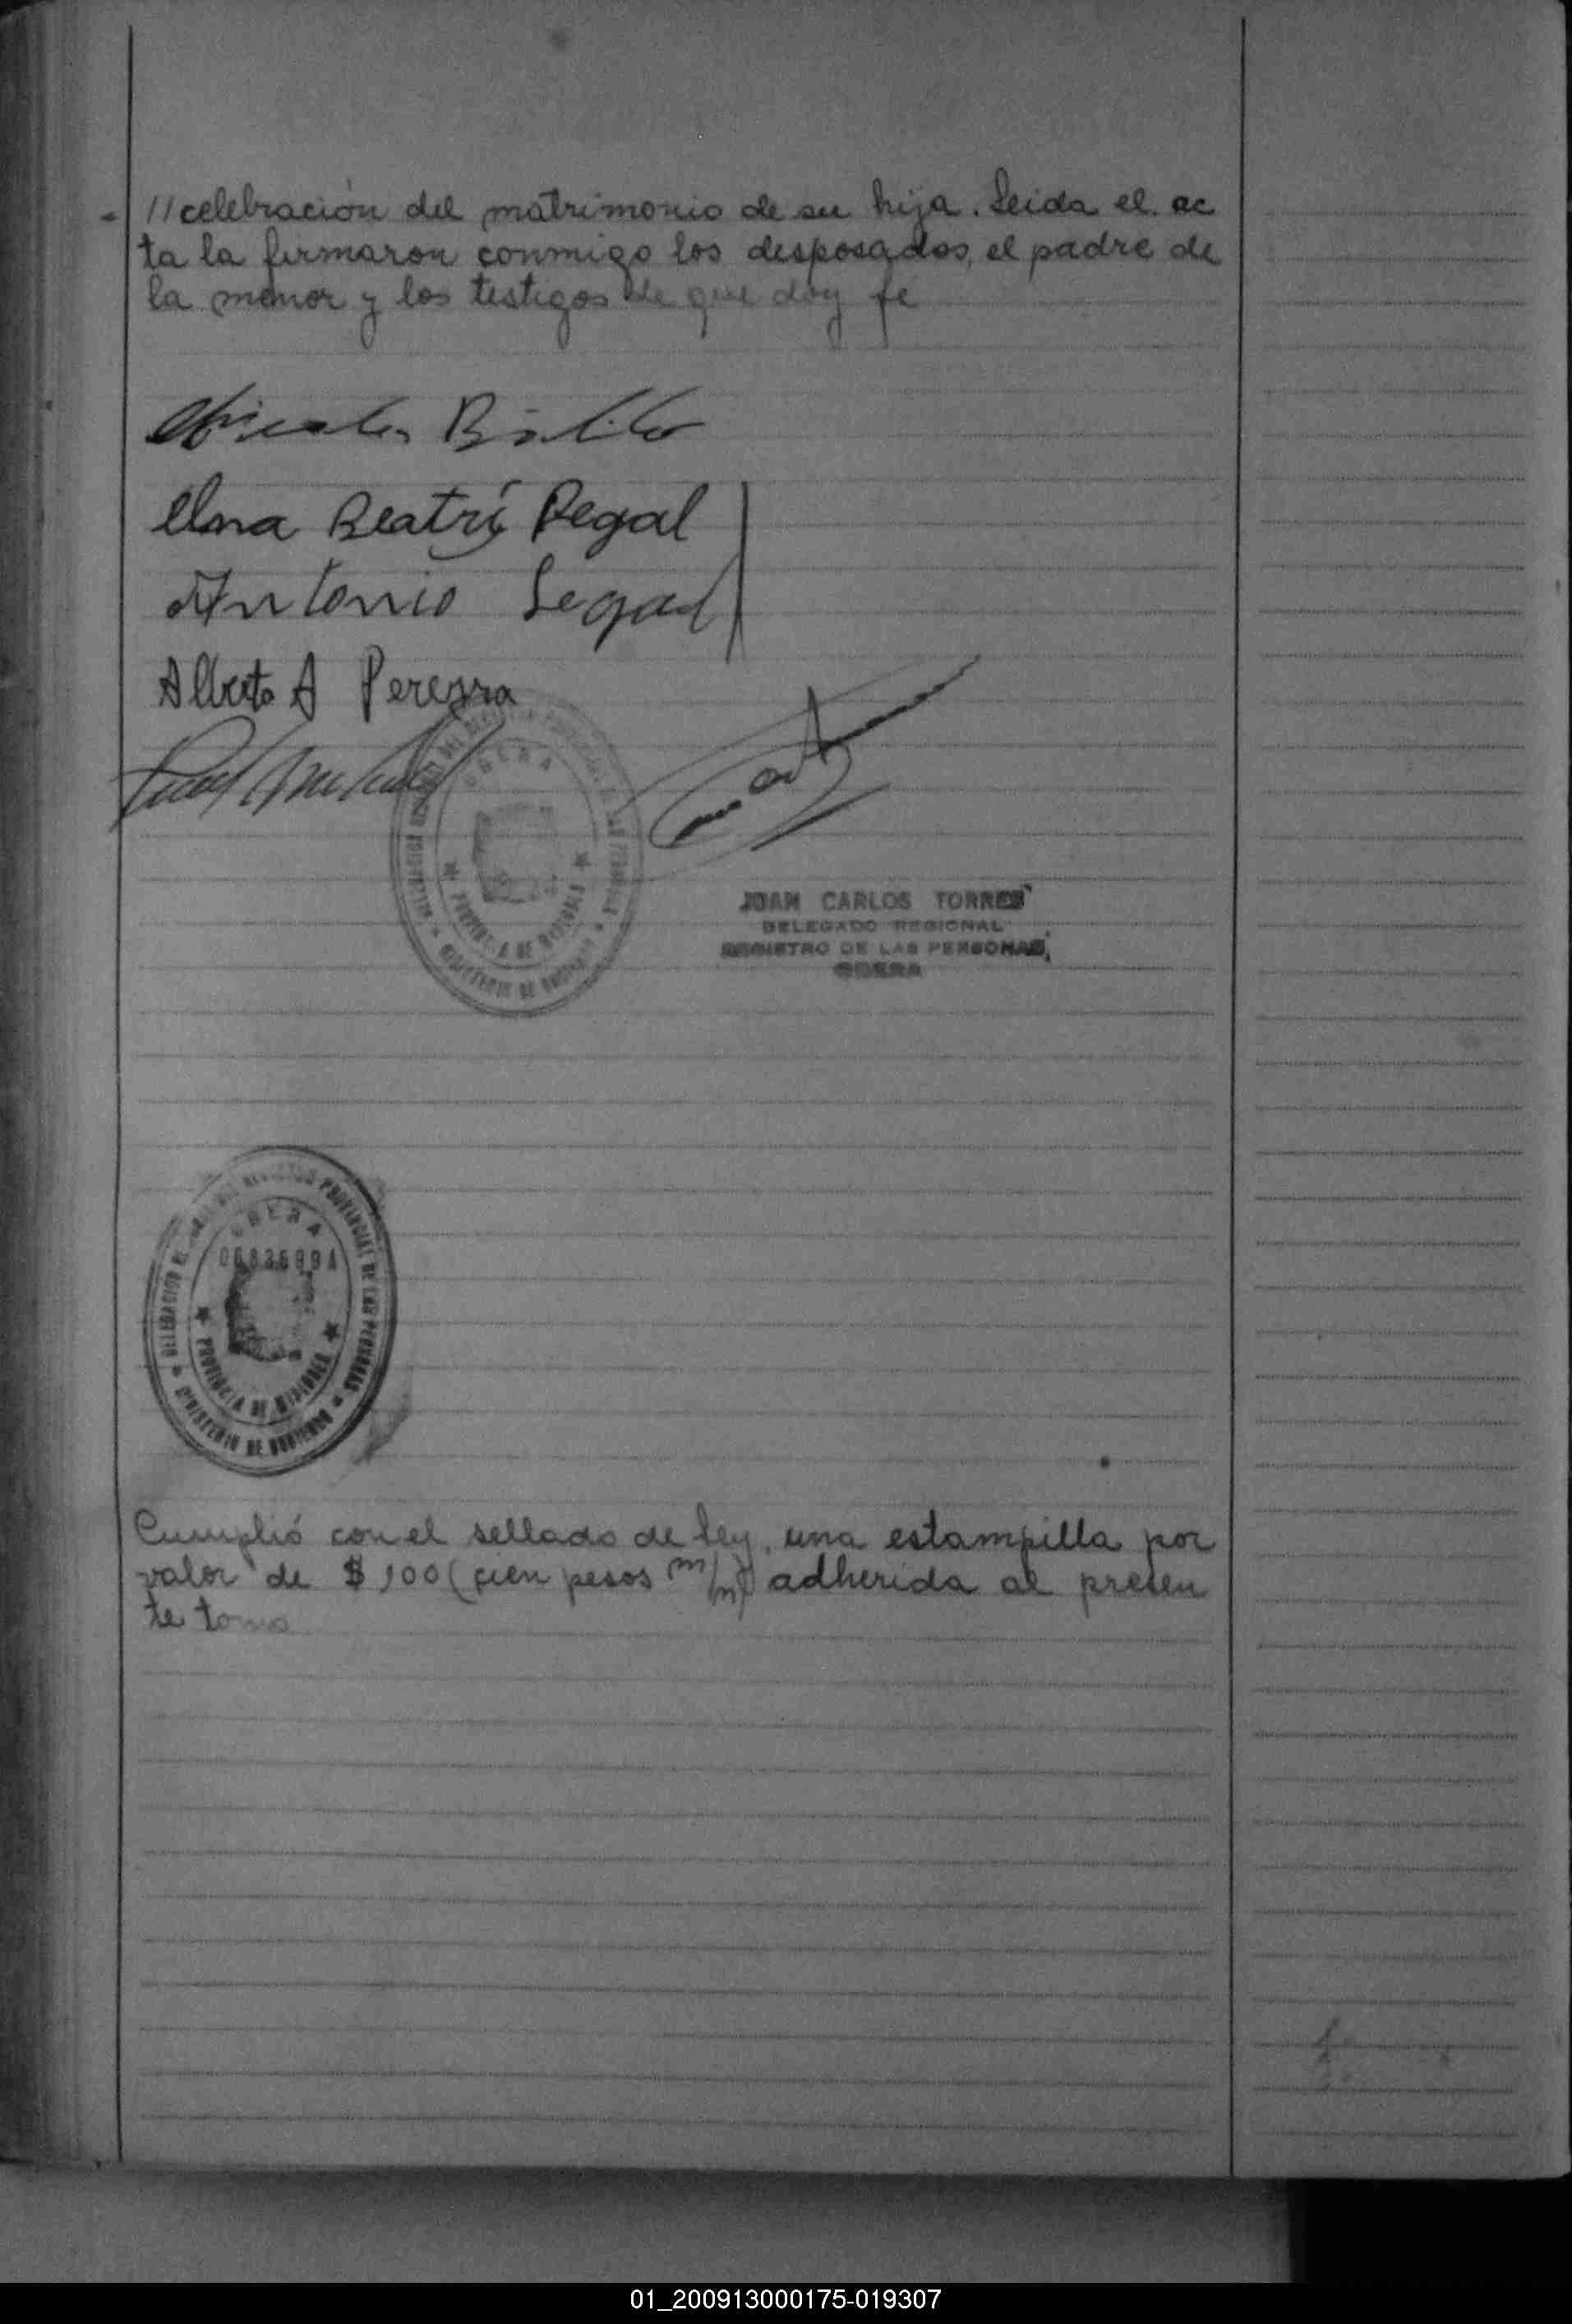 //celebración del matrimonio de su hija. Leida el ac
ta la firmaron conmigo los desposados, el padre de
la menor y los testigos de que doy fe
Elna Beatríz Segal
Antonio Segal
Alberto A Pereyra
OBERA
PROVINCIA DE MISIONES
MINISTERIO DE GOBIERNO
JUAN CARLOS TORRES
DELEGADO REGIONAL
REGISTRO DE LAS PERSONAS
OBERA
REGISTRO PROVINCIAL DE LAS PERSONAS
OBERA
PROVINCIA DE MISIONES
MINISTERIO DE GOBIERNO
Cumplió con el sellado de ley, una estampilla por
valor de $ 100 (cien pesos m/n) adherida al presen
te tomo
01_200913000175-019307